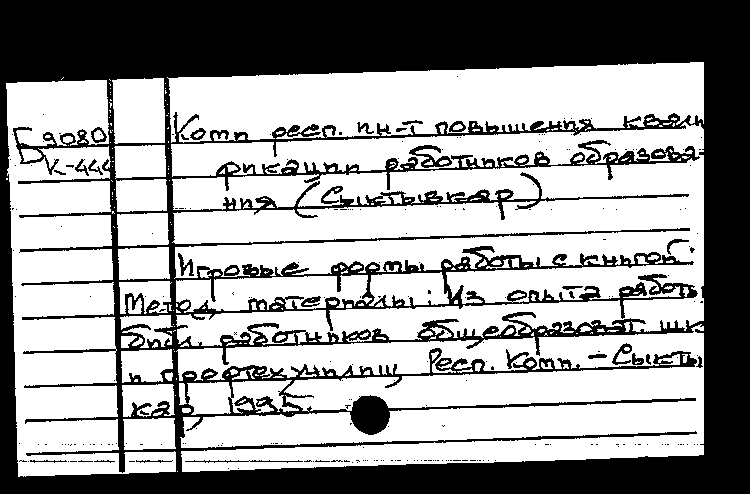 Б9080 Коми респ. ин-т повышения квали
К-444 фикации работников образова-
ния (Сыктывкар)
Игровые формы работы с книгой:
Метод. материалы: Из опыта работы
библ. работников общеобразоват. шк
и профтехучилищ Респ. Коми. - Сыкты
кар, 1995.